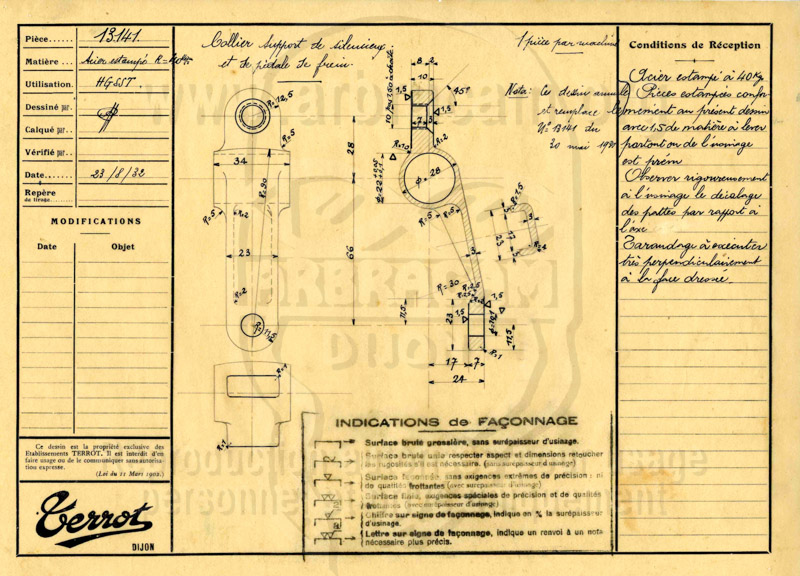 Pièce...... 13141.
Matière... Acier estampé R=40
Utilisation. HGSST
Dessiné par.
Calqué par..
Vérifié par...
Date....... 23/8/32
Repère
de tirage
MODIFICATIONS
Date Objet
Ce dessin est la propriété exclusive des
Etablissements TERROT. Il est interdit d'en
faire usage ou de le communiquer sans autorisa-
tion expresse.
(Loi du 11 Mars 1902.)
Terrot
DIJON
Collier support de silencieux
et de pédale de frein.
1 pièce par machine
Nota: Ce dessin annule
et remplace le
N° 13141 du
20 mai 1930
R=12,5
R=5
34
R=90
R=5
R=2
23
R=2
R=
11,5
R=1
R=1
28
66
8 2
10
45°
1,5
1,5
7 3
R=2
R=10
Φ=28
R=5
R=5
3
R=30
R=2,5
R=25
1,5
1,5
11,5
23
11,5
R=1
17 7
24
R=7,5
R=2
Conditions de Réception
Acier estampé à 40 Kg
Pièces estampées confor
mement au présent dessin
avec 1,5 de matière à lever
partout ou de l'usinage
est prévu
Observer rigoureusement
à l'usinage le décalage
des pattes par rapport à
l'axe
Taraudage à exécuter
très perpendiculairement
à la face dressée.
INDICATIONS de FAÇONNAGE
Surface brute grossière, sans surépaisseur d'usinage.
Surface brute unie respecter aspect et dimensions retoucher
les rugosités s'il est nécessaire. (sans surépaisseur d'usinage)
Surface façonnée, sans exigences extrêmes de précision : ni
de qualités frottantes (avec surépaisseur d'usinage)
Surface finie, exigences spéciales de précision et de qualités
frottantes (avec surépaisseur d'usinage)
Chiffre sur signe de façonnage, indique en % la surépaisseur
d'usinage.
Lettre sur signe de façonnage, indique un renvoi à une note
nécessaire plus précis.
ARBRACAM
DIJON